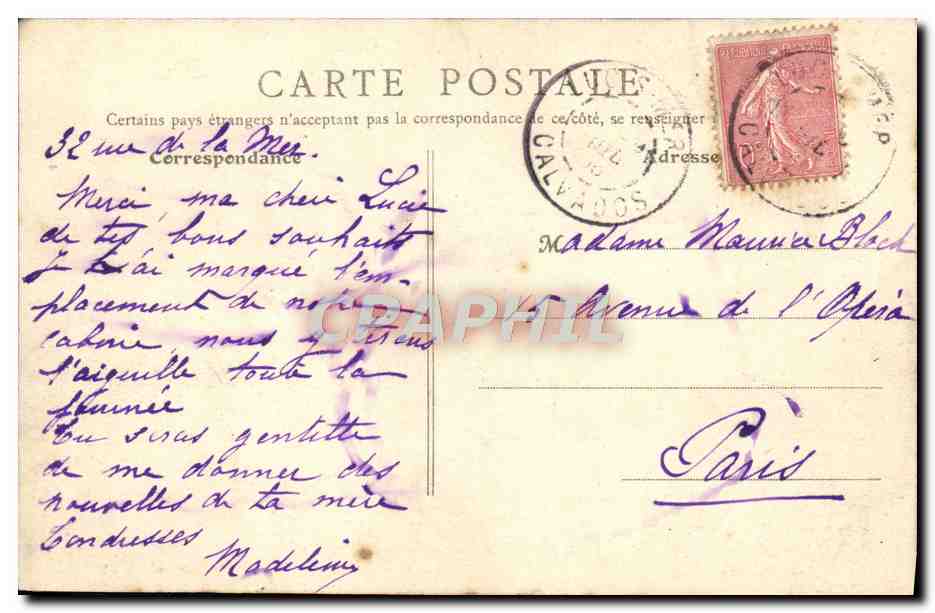 CARTE POSTALE
Certains pays étrangers n'acceptent pas la correspondance de ce côté, se renseigner
Correspondance
Adresse
32 rue de la Mer.
Merci, ma chère Lucie
de tes bons souhaits
Je t'ai marqué l'em-
placement de notre
cabine, nous y tirons
l'aiguille toute la
journée
Tu seras gentille
de me donner des
nouvelles de ta mère
Tendresses
Madeleine
Madame Maurice Bloch
45 Avenue de l'Opéra
Paris
CALVADOS
CPAPHIL